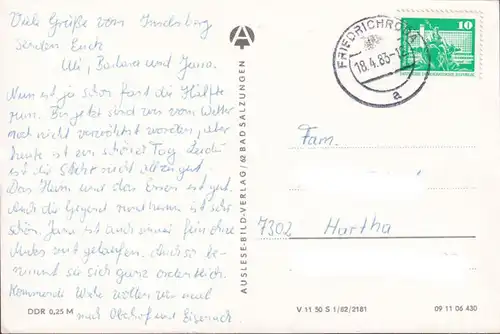 Viele Grüße vom Inselsberg
senden Euch
Uli, Barbara und Jana.
Nun ist ja schon fast die Hälfte
rum. Bis jetzt sind wir vom Wetter
noch nicht verwöhnt worden, aber
heute ist ein schöner Tag. Leider
ist die Sicht nicht allzu gut.
Das Heim und das Essen ist gut.
Auch die Gegend rundherum ist sehr
schön. Jana ist auch immer fein ohne
mit gelaufen. Auch so be-
nimmt sie sich ganz ordentlich.
Kommende Woche wollen wir mal
nach Oberhof und Eisenach
DDR 0,25 M
A
AUSLESE-BILD-VERLAG/62 BAD SALZUNGEN
FRIEDRICHRODA
18.4.83
a
10
Fam.
7302 Hartha
V 11 50 S 1/82/2181
09 11 06 430